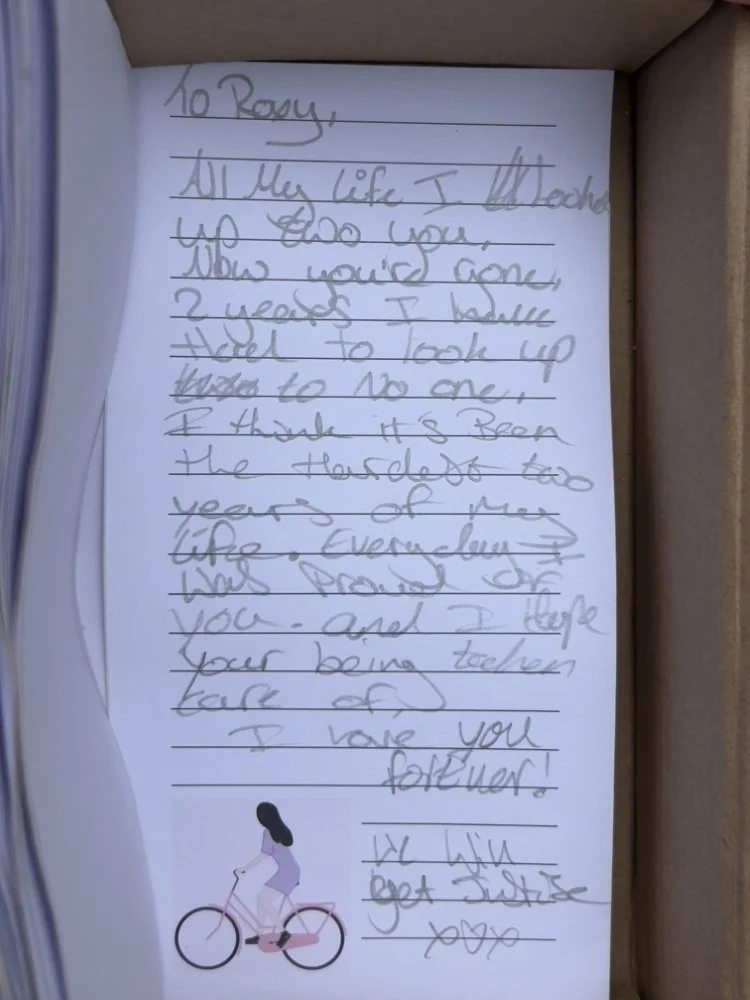 To Rosy,
All My life I looked
up two you,
Now you're gone,
2 years I have
Had to look up
to No one,
I think it's Been
the Hardest two
years of My
life. Everyday I
was Proud of
you. and I Hope
your being
care of,
I love you
forever!
We Will
get Justise
x♡x